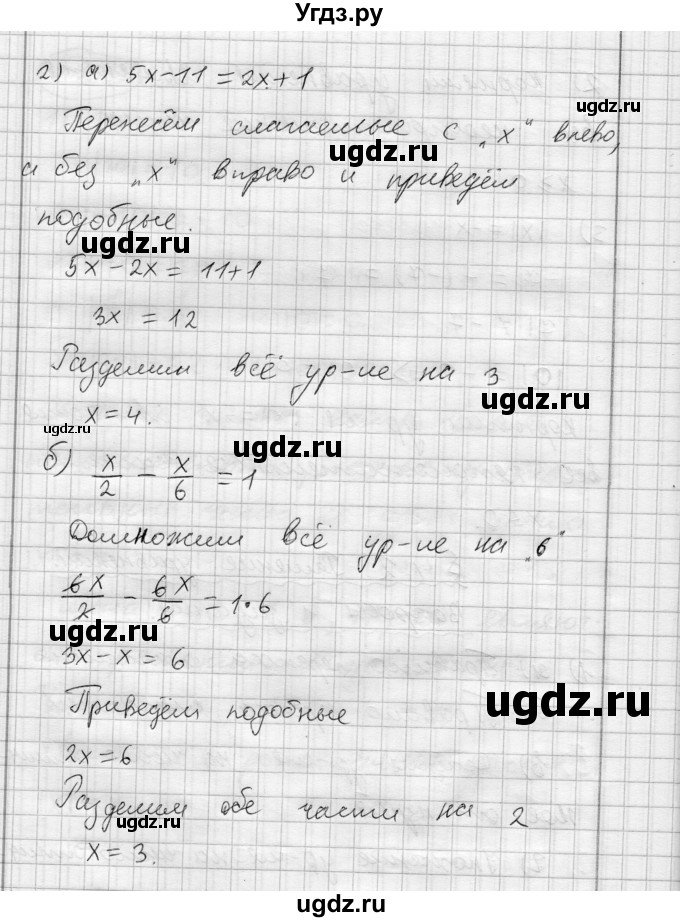 Угдз.ру
2) а) 5x-11=2x+1
Перенесём слагаемые с „x“ влево,
а без „x“ вправо и приведём
подобные.
5x-2x=11+1
3x=12
Разделим всё ур-ие на 3
x=4.
б) x/2 - x/6 = 1
Домножим всё ур-ие на „6“
6x/2 - 6x/6 = 1•6
3x-x=6
Приведём подобные
2x=6
Разделим обе части на 2
x=3.
ugdz.ru
ugdz.ru
ugdz.ru
ugdz.ru
ugdz.ru
ugdz.ru
ugdz.ru
ugdz.ru
ugdz.ru
ugdz.ru
ugdz.ru
ugdz.ru
ugdz.ru